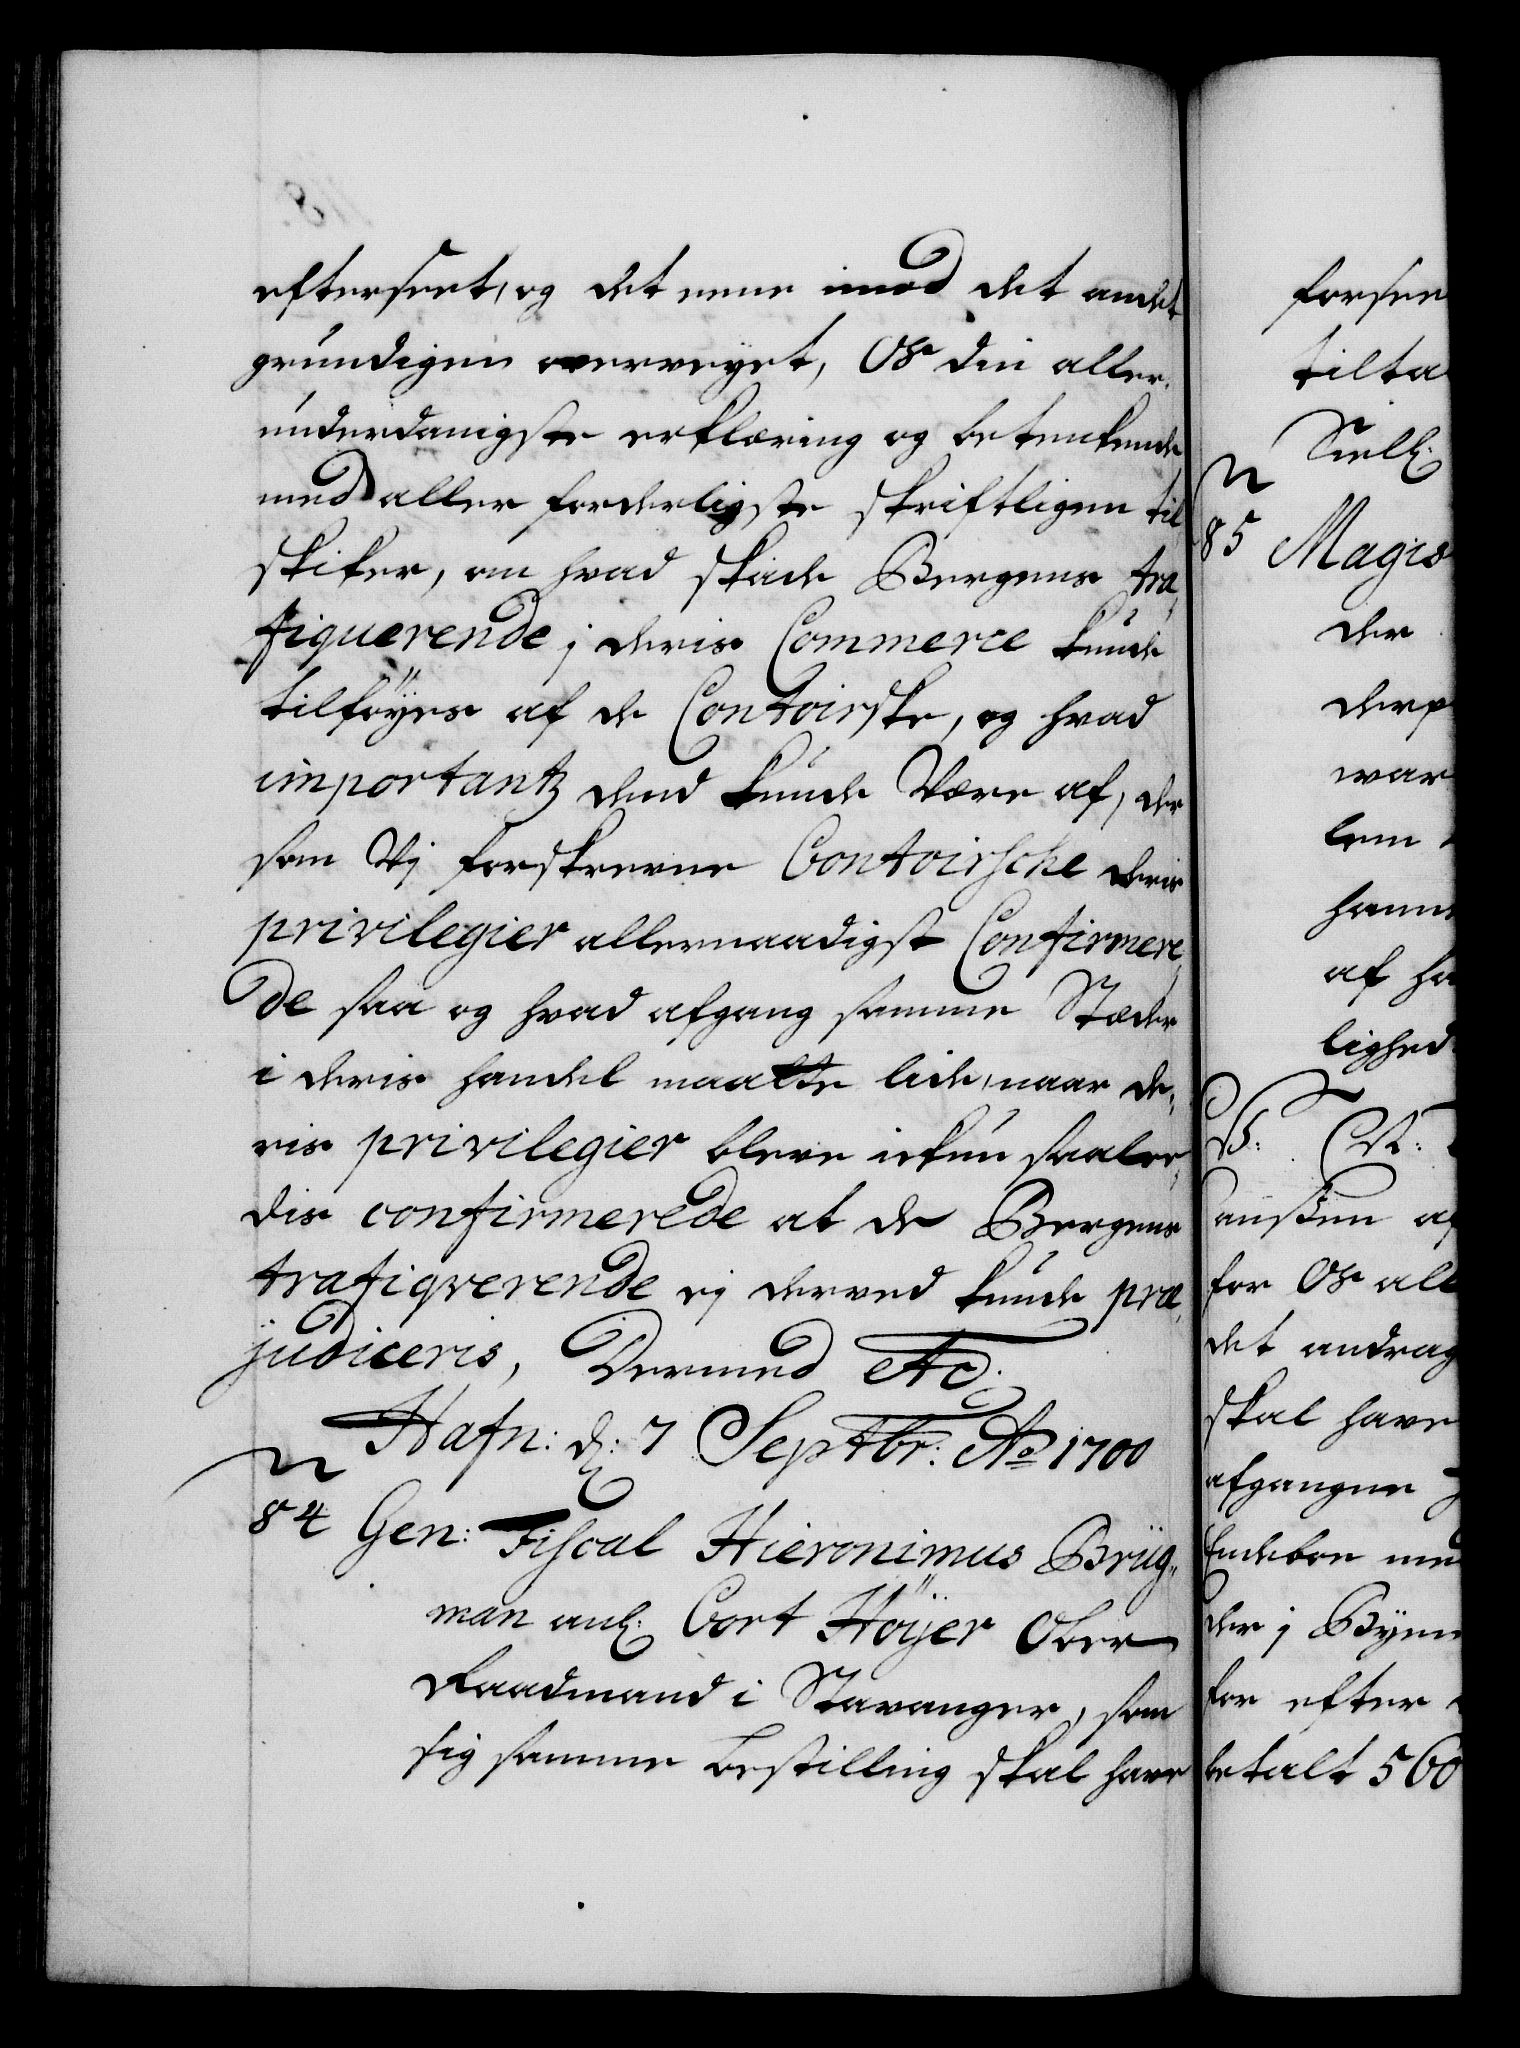 efterseet, og det eene imod det andet
grundigen overveyet, Os din aller,
underdanigste erklæring og betenkende
med aller forderligste skriftligen til
skiker, om hvad skade Bergens tra,
fiquerende j deris Commerce kunde
tilføyes af de Contoirske, og hvad
importantz dend kunde Være af, der
som Vj forskrevne Contoirsche deris
privilegier allernaadigst Confirmere,
de saa og hvad afgang samme Stæder
i deris handel maatte lide, naar de,
ris privilegier bleve ickun saalee,
dis confirmerede at de Bergens
trafiqverende ej derved kunde præ,
judiceris, Dermed etc.
Hafn: d: 7 Septbr: Ao 1700
84 Gen: Fiscal Hieronimus Brüg,,
man anl: Cort Höÿer Ober
Raadmand i Stavanger, som
sig samme bestilling skal have
forsee
tilta
85 Magis
der
derp
war
lem
hann
af ha
lighed
for Os all
det andrag
skal have
afgangne
der j Byen
for efter
betalt 560